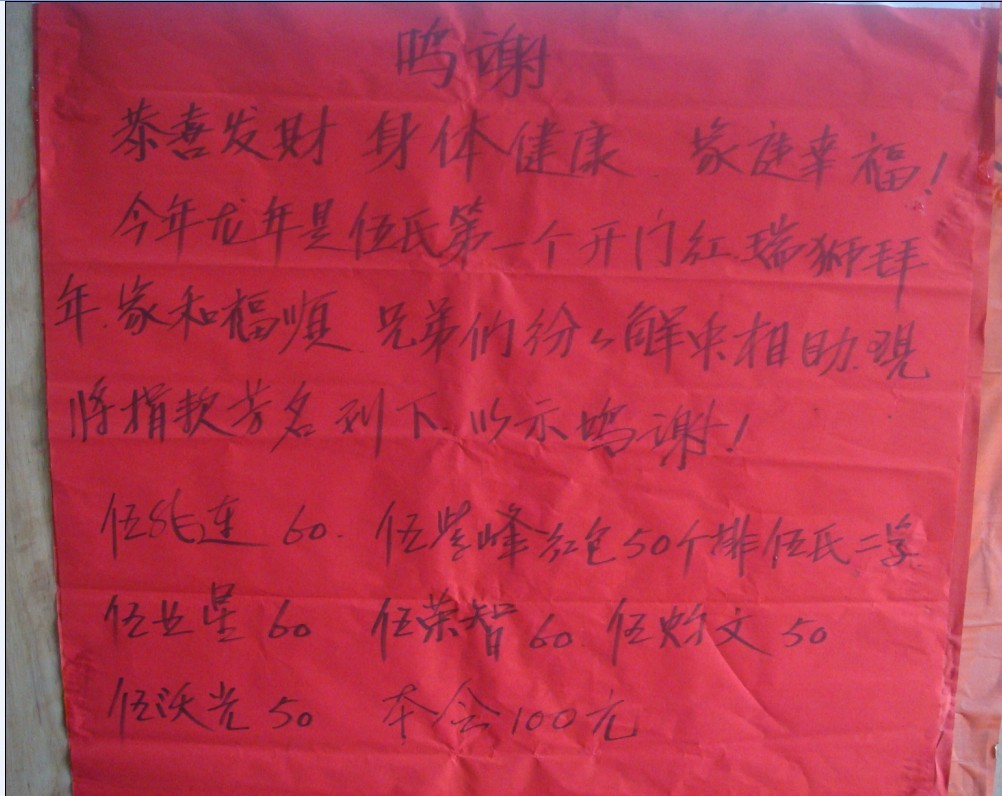 鸣谢
恭喜发财 身体健康 家庭幸福!
今年龙年是伍氏第一个开门红.瑞狮拜
年.家和福顺.兄弟们纷々解束相助.现
将捐款芳名列下.以示鸣谢!
伍兆连 60. 伍紫峰红包50个排伍氏二字
伍业星 60 伍荣智 60 伍灿文 50
伍沃光 50 本会100元